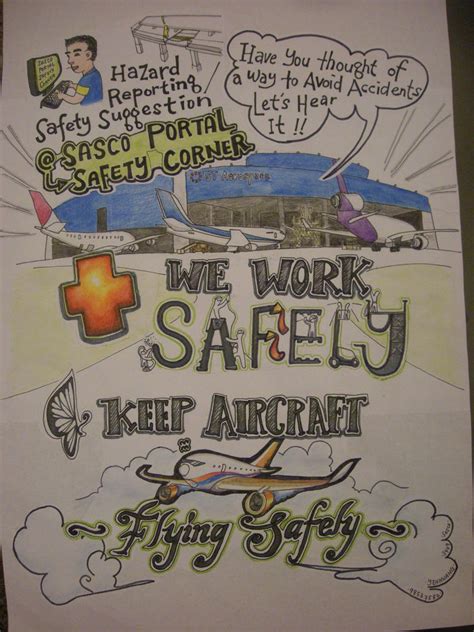 Hazard
Reporting/
Safety Suggestion
@ SASCO PORTAL
SAFETY CORNER
Have You thought of
a way to Avoid Accidents
Let's Hear
It !!
ST Aerospace
WE WORK
SAFELY
KEEP AIRCRAFT
~ Flying Safely ~